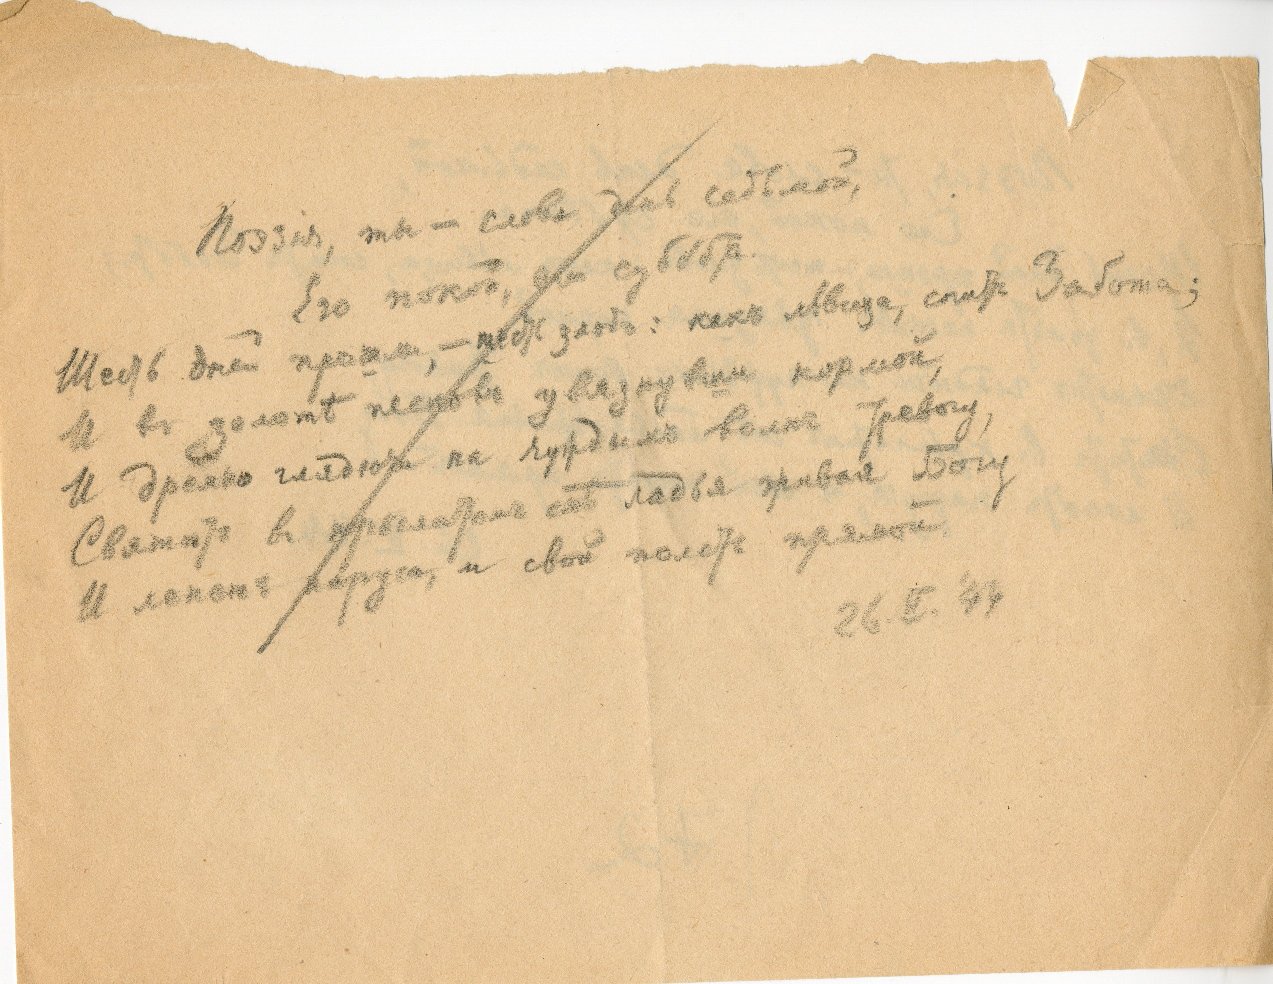 Поэзія, ты — слова день седьмой,
Его покой, его суббота.
Шесть дней прошли, — шесть злобъ: какъ львица, спитъ Забота;
И въ золотѣ песковъ увязнувши кормой,
И дрёмно глядючи на чуждыхъ волнъ тревогу,
Святитъ въ крылатомъ снѣ ладья живая Богу
И лепетъ паруса, и свой полетъ прямой
26. II. '44